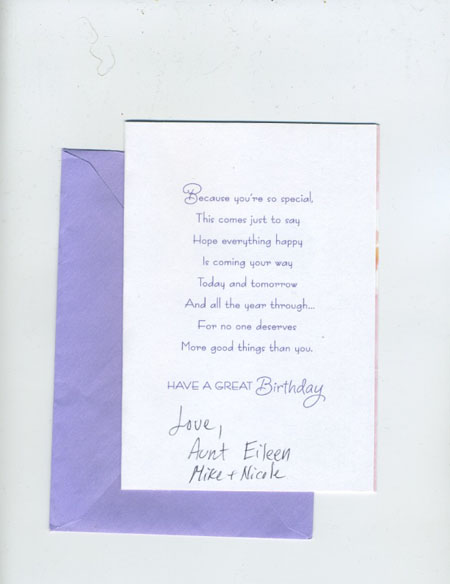 Because you're so special,
This comes just to say
Hope everything happy
Is coming your way
Today and tomorrow
And all the year through...
For no one deserves
More good things than you.
HAVE A GREAT Birthday
Love,
Aunt Eileen
Mike + Nicole